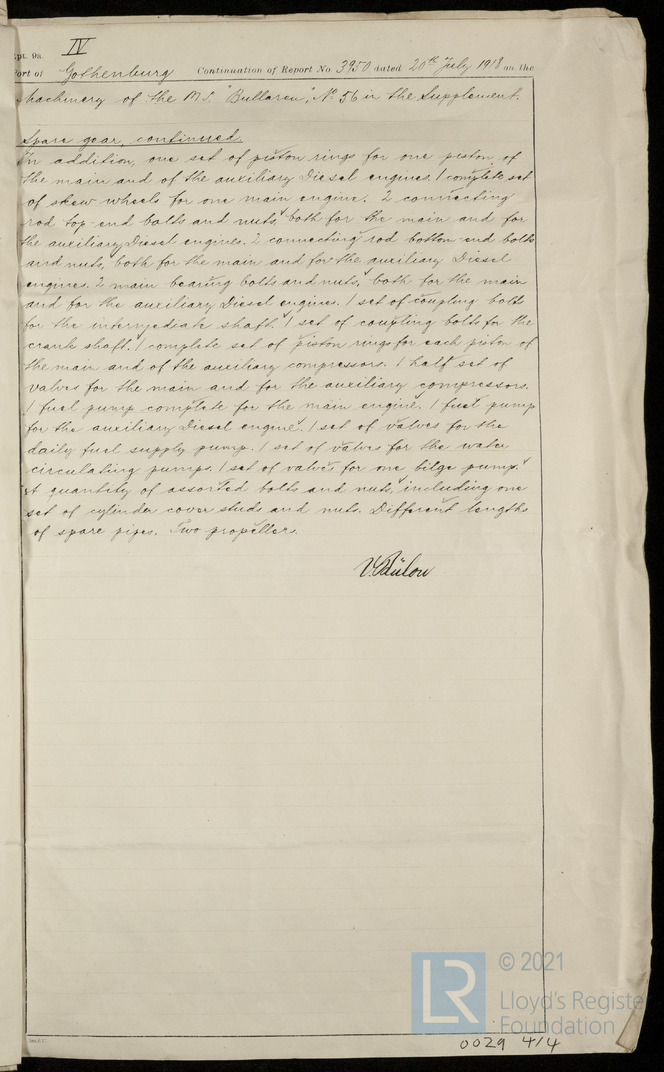 pt. 9a. IV
ort of Gothenburg Continuation of Report No. 3950 dated 20th July 1918 on the
Machinery of the M.S. "Bullaren", No 56 in the Supplement.
Spare gear, continued.
In addition, one set of piston rings for one piston of
the main and of the auxiliary Diesel engines. 1 complete set
of skew wheels for one main engine. 2 connecting
rod top-end bolts and nuts, both for the main and for
the auxiliary Diesel engines. 2 connecting rod bottom-end bolts
and nuts, both for the main and for the auxiliary Diesel
engines. 2 main bearing bolts and nuts, both for the main
and for the auxiliary Diesel engines. 1 set of coupling bolts
for the intermediate shaft. 1 set of coupling bolts for the
crank shaft. 1 complete set of piston rings for each piston of
the main and of the auxiliary compressors. 1 half set of
valves for the main and for the auxiliary compressors.
1 fuel pump complete for the main engine. 1 fuel pump
for the auxiliary Diesel engine. 1 set of valves for the
daily fuel supply pump. 1 set of valves for the water
circulating pumps. 1 set of valves for one bilge pump.
A quantity of assorted bolts and nuts, including one
set of cylinder cover studs and nuts. Different lengths
of spare pipes. Two propellers.
V. Bülow
LR © 2021
Lloyd's Register
Foundation
0029 4/4